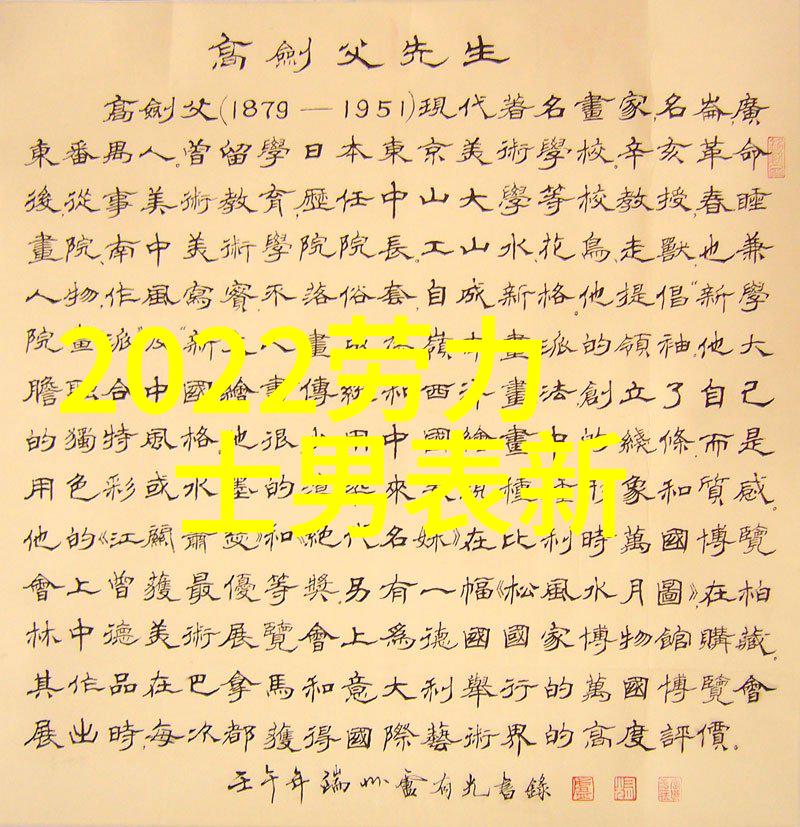 高劍父先生
高劍父(1879—1951)現代著名畫家,名崙,廣
東番禺人。曾留學日本東京美術學校。辛亥革命
後,從事美術教育,歷任中山大學等校教授,春睡
畫院、南中美術學院院長。工山水、花鳥、走獸,也兼
人物,作風寫實,不落俗套,自成新格。他提倡“新學
院畫派”及“新文人畫 嶺 畫派的領袖。他大
膽 合中國繪畫傳統和西洋畫法,創立了自己
的獨特風格。他很 用中國繪畫中的綫條,而是
用色彩或水墨的 來 種 形象和質感。
他的《江關蕭瑟》和《絕代名姝》在比利時萬國博覽
會上曾獲最優等獎。另有一幅《松風水月圖》,在柏
林中德美術展覽會上爲德國國家博物館購藏。
其作品在巴拿馬和意大利舉行的萬國博覽會
展出時,每次都獲得國際藝術界的高度評價。
壬午年端州盧有光書錄
2022劳力
士男表新